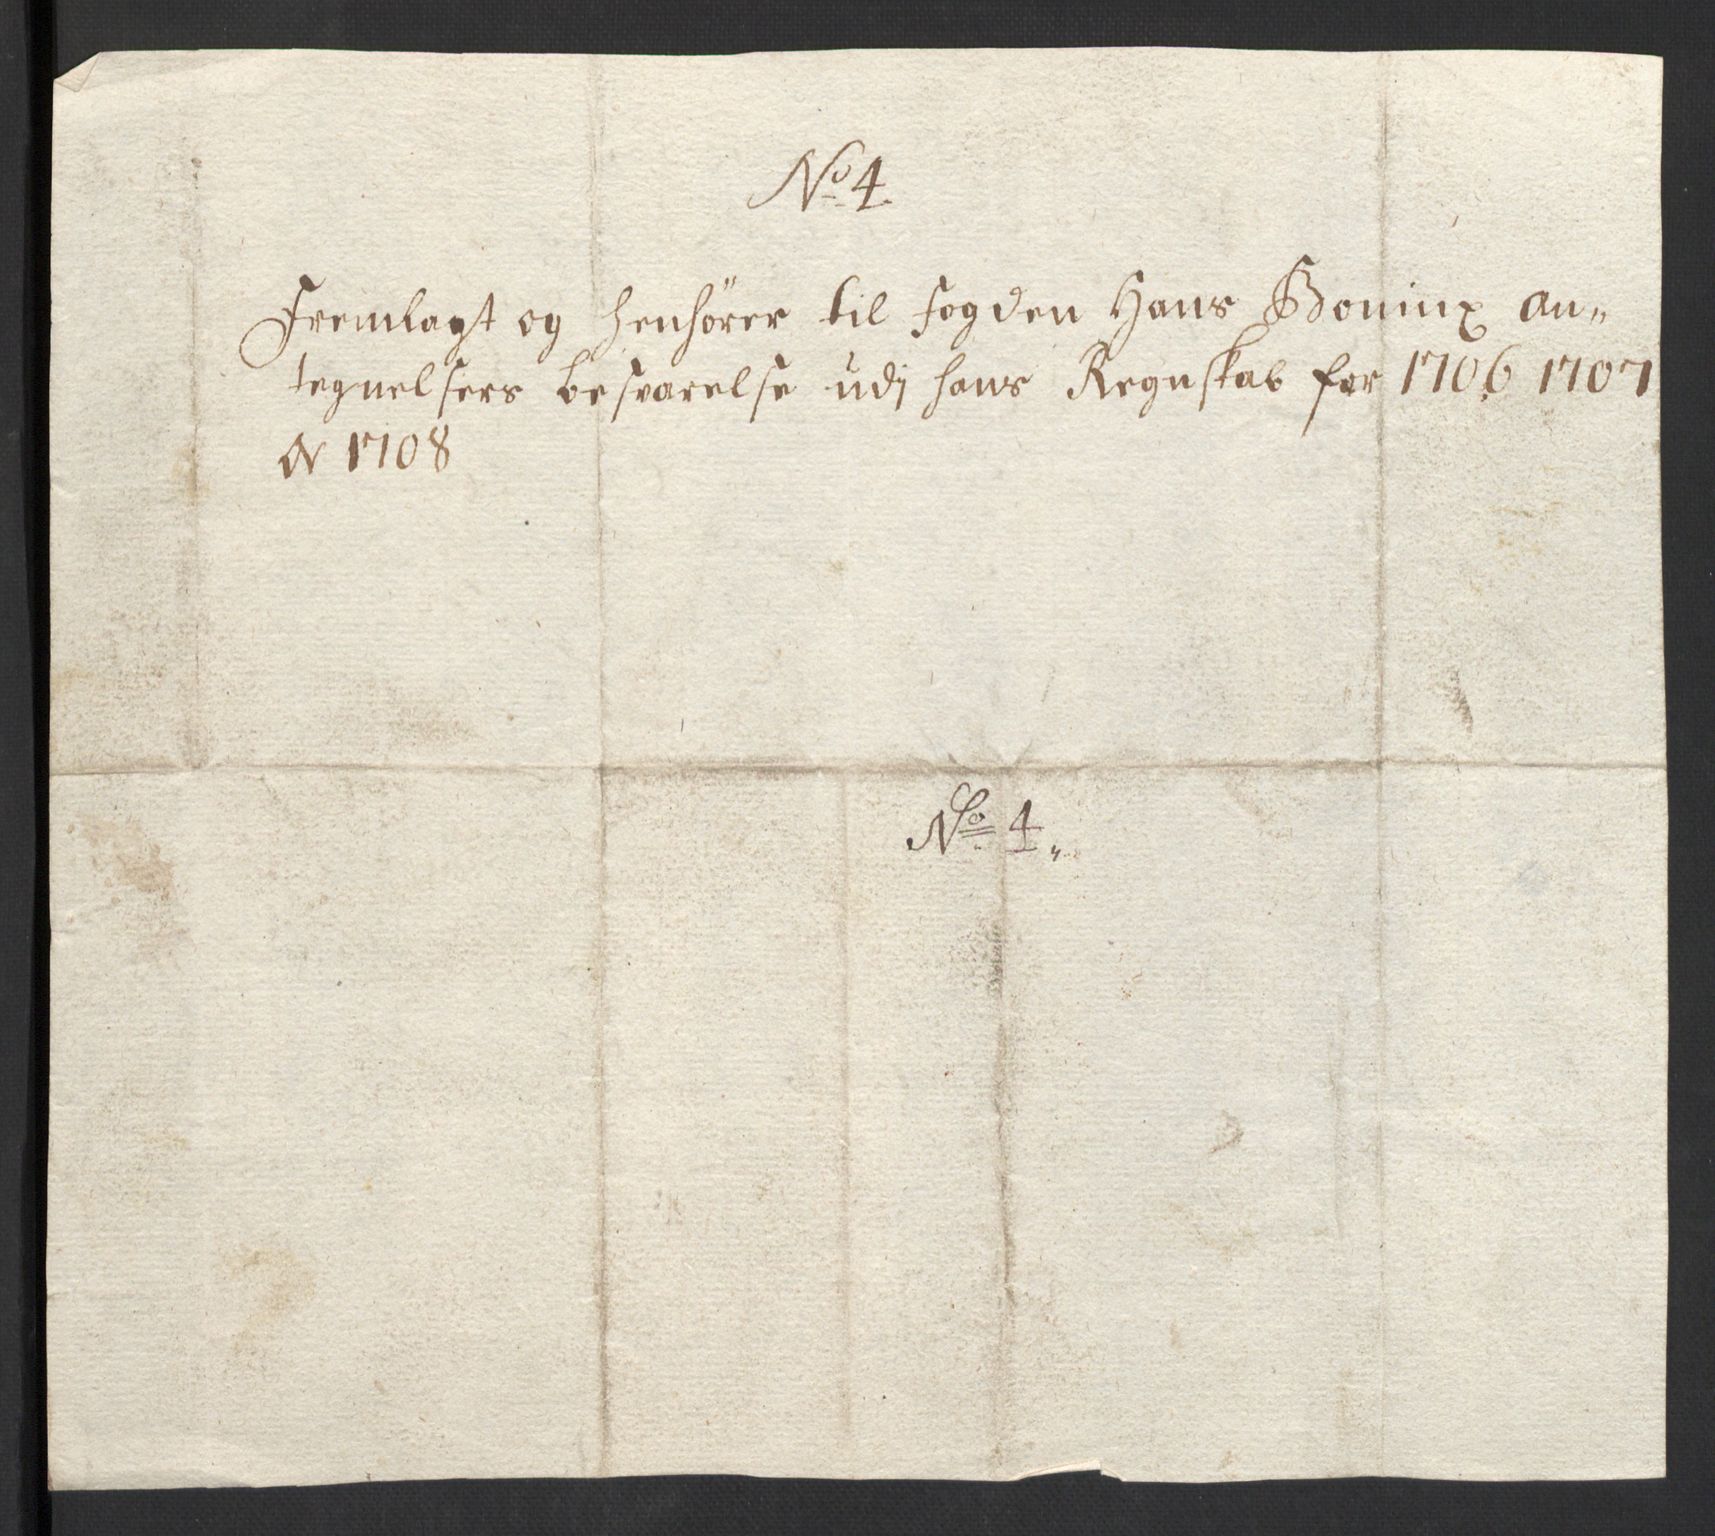 No 4
Fremlagt og henhörer til fogden Hans Boninx an„
tegnelsers besvarelse udj hans Regnskab for 1706 1707
& 1708
No 4„